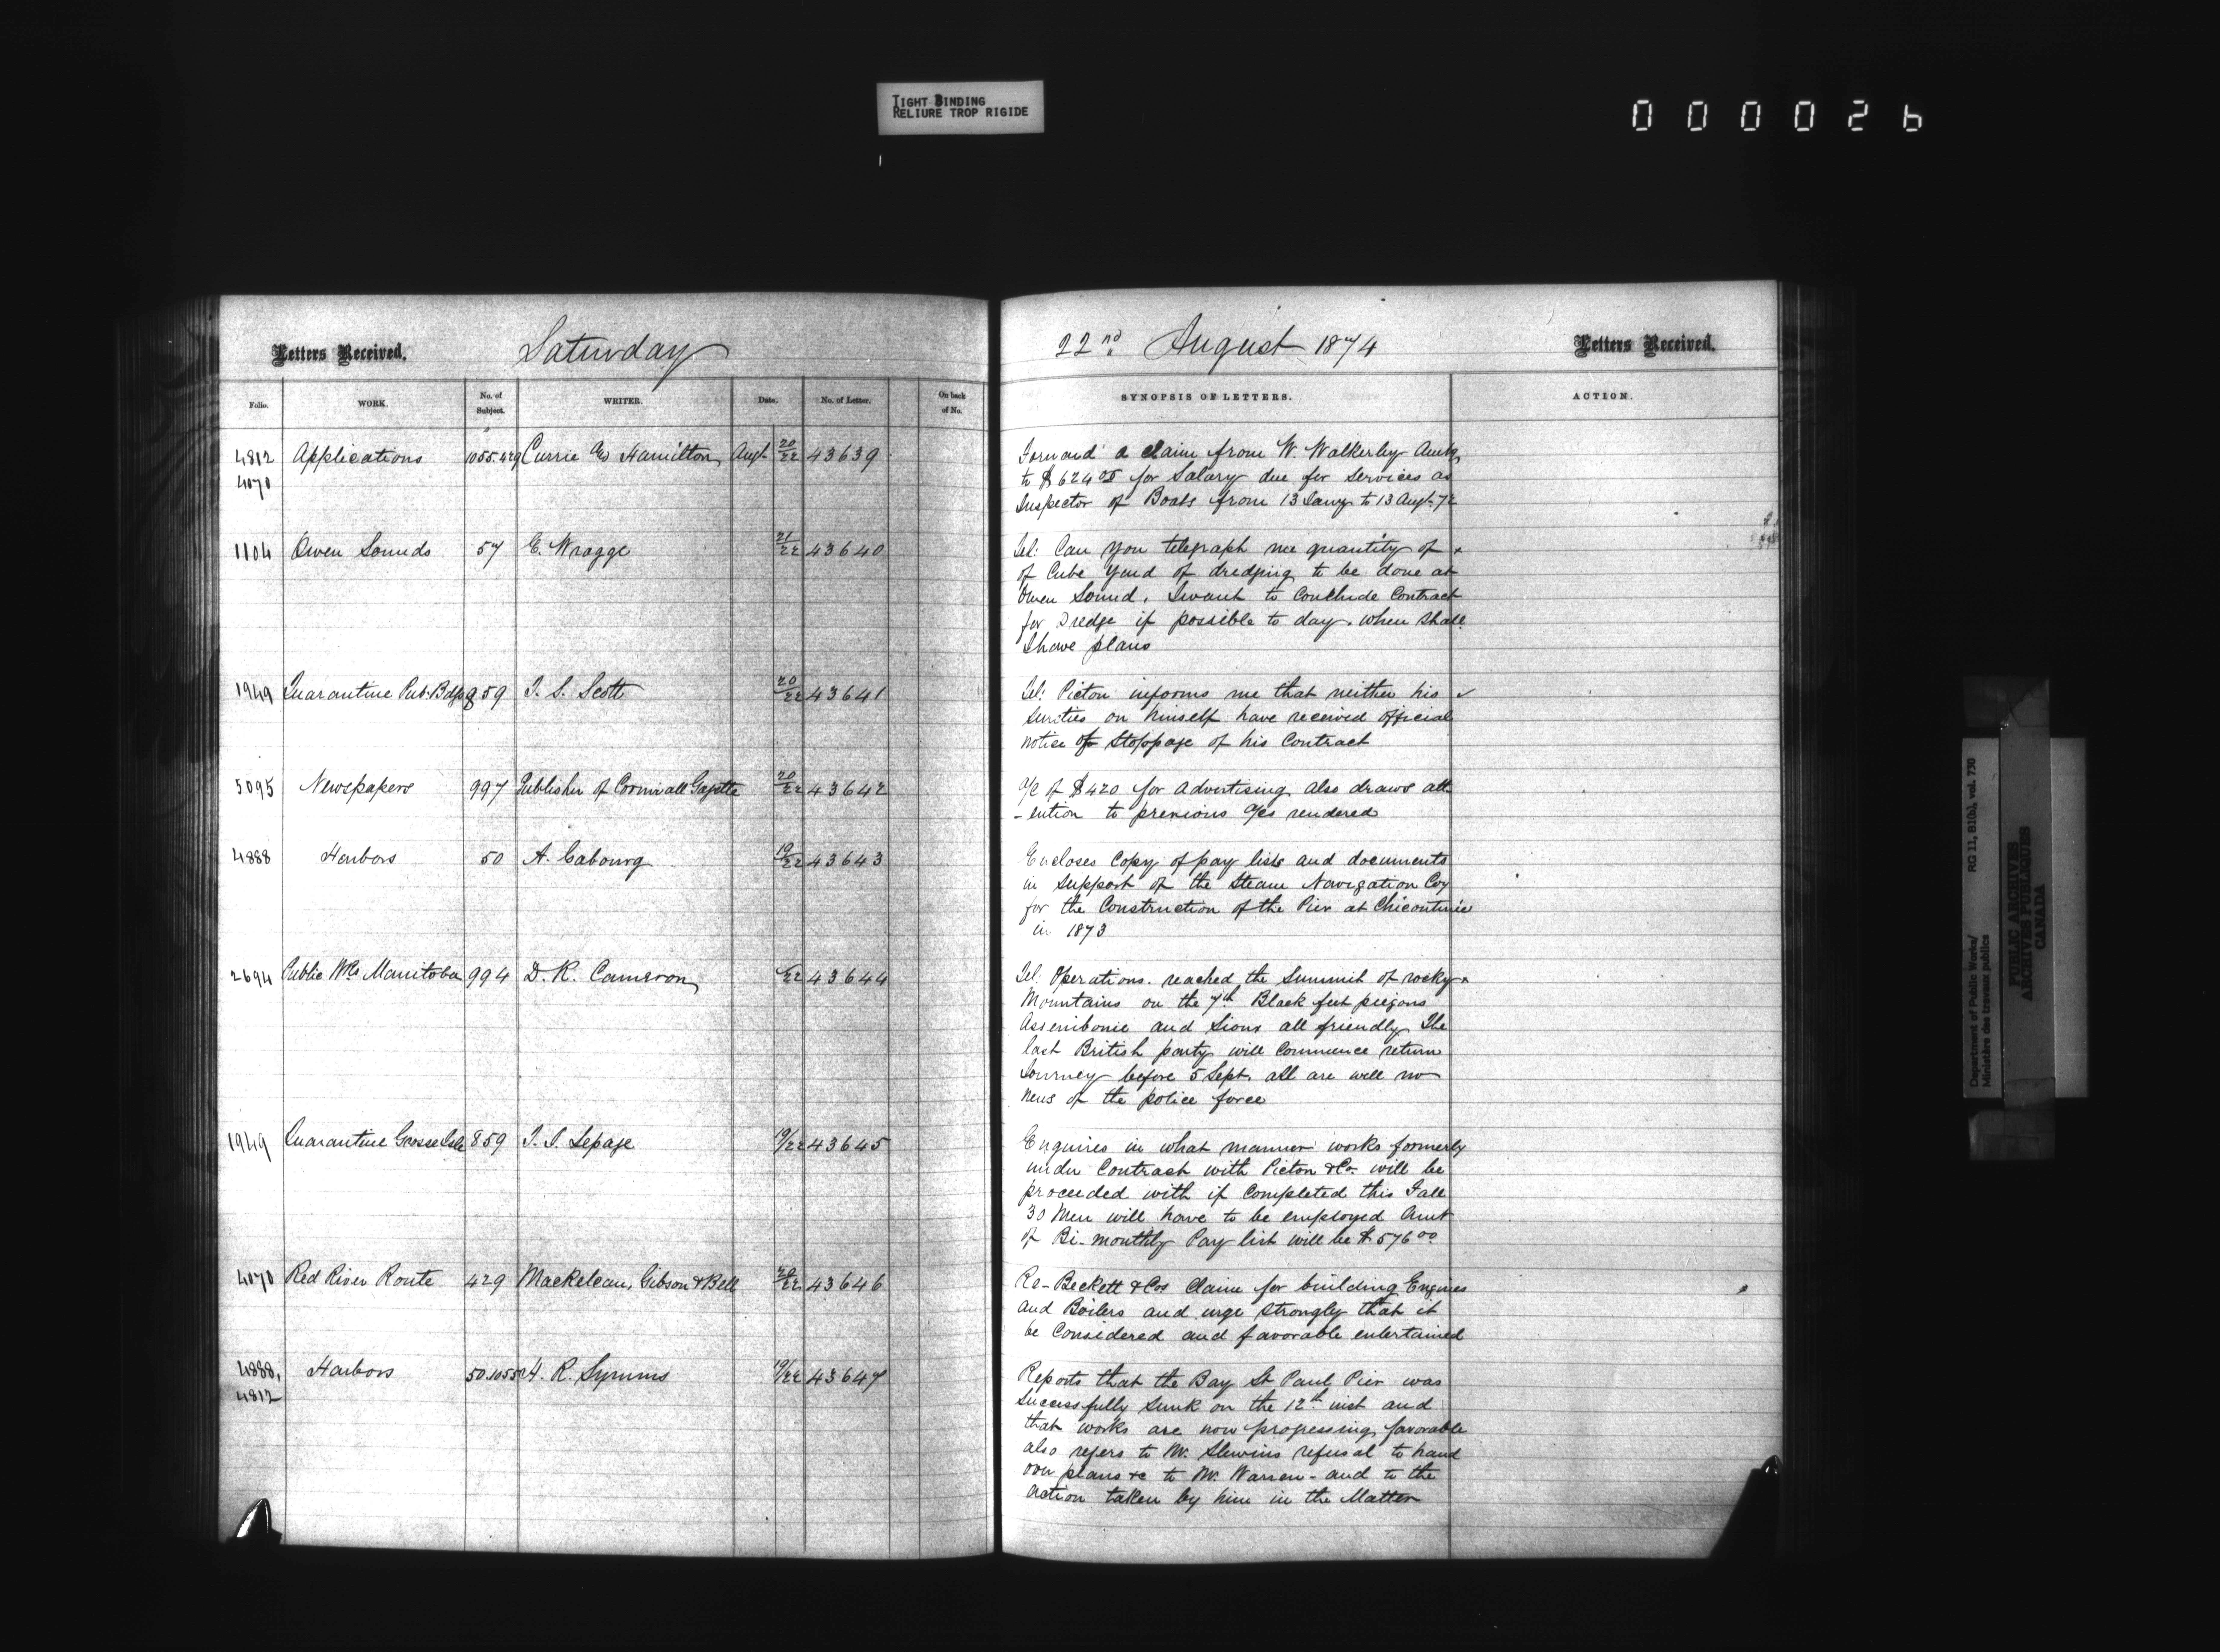 TIGHT BINDING
RELIURE TROP RIGIDE
000026
Letters Received.
Saturday
22nd August 1874
Letters Received.
Folio.
WORK.
No. of Subject.
WRITER.
Date.
No. of Letter.
On back of No.
SYNOPSIS OF LETTERS.
ACTION.
4812 Applications 1055.429 Currie & Hamilton Augt 20/22 43639
4070
Forward a claim from W. Walkerley Amtg
to $624 05 for Salary due for services as
Inspector of Boats from 13 Jany to 13 Augt 72
1104 Owen Sounds 57 E. Wragge 21/22 43640
Tel: Can you telegraph me quantity of
of Cube Yard of dredging to be done at
Owen Sound. I want to Conclude Contract
for Dredge if possible to day. when shall
I have plans
1949 Quarantine Pub: Bdgs 859 T. S. Scott 20/22 43641
Tel: Picton informs me that neither his
Sureties on himself have received official
notice of Stoppage of his Contract
5095 Newspapers 997 Publisher of Cornwall Gazette 20/22 43642
a/c of $4.20 for Advertising Also draws att
-ention to previous a/cs rendered
4888 Harbors 50 A. Cabourg 19/22 43643
Encloses Copy of pay lists and documents
in support of the Steam Navigation Coy
for the Construction of the Pier at Chicoutimie
in 1873
2694 Public Wks Manitoba 994 D. R. Cameron /22 43644
Tel. Operations. reached the Summit of rocky
Mountains on the 7th Black feet piegons
Assenibonie and Sioux all friendly The
last British party will Commence return
Journey before 5 Sept. all are well no
news of the police force
1949 Quarantine Grosse Isle 859 T. S. Lepage 19/22 43645
Enquires in what manner works formerly
under Contract with Picton & Co. will be
proceeded with if Completed this Fall
30 Men will have to be employed Amt
of Bi-monthly Pay list will be $576 00
4070 Red River Route 429 Mackelcan, Gibson & Bell 20/22 43646
Re-Beckett & Cos Claim for building Engines
and Boilers and urge strongly that it
be Considered and favorable entertained
4888, Harbors 50.1055 H. R. Symms 19/22 43647
4812
Reports that the Bay St Paul Pier was
Successfully Sunk on the 12th inst and
that works are now progressing favorable
also refers to Mr. Slevins refusal to hand
over plans &c to Mr. Warren - and to the
Action taken by him in the Matter
Department of Public Works/
Ministère des travaux publics
RG 11, B1(b), vol. 730
PUBLIC ARCHIVES
ARCHIVES PUBLIQUES
CANADA